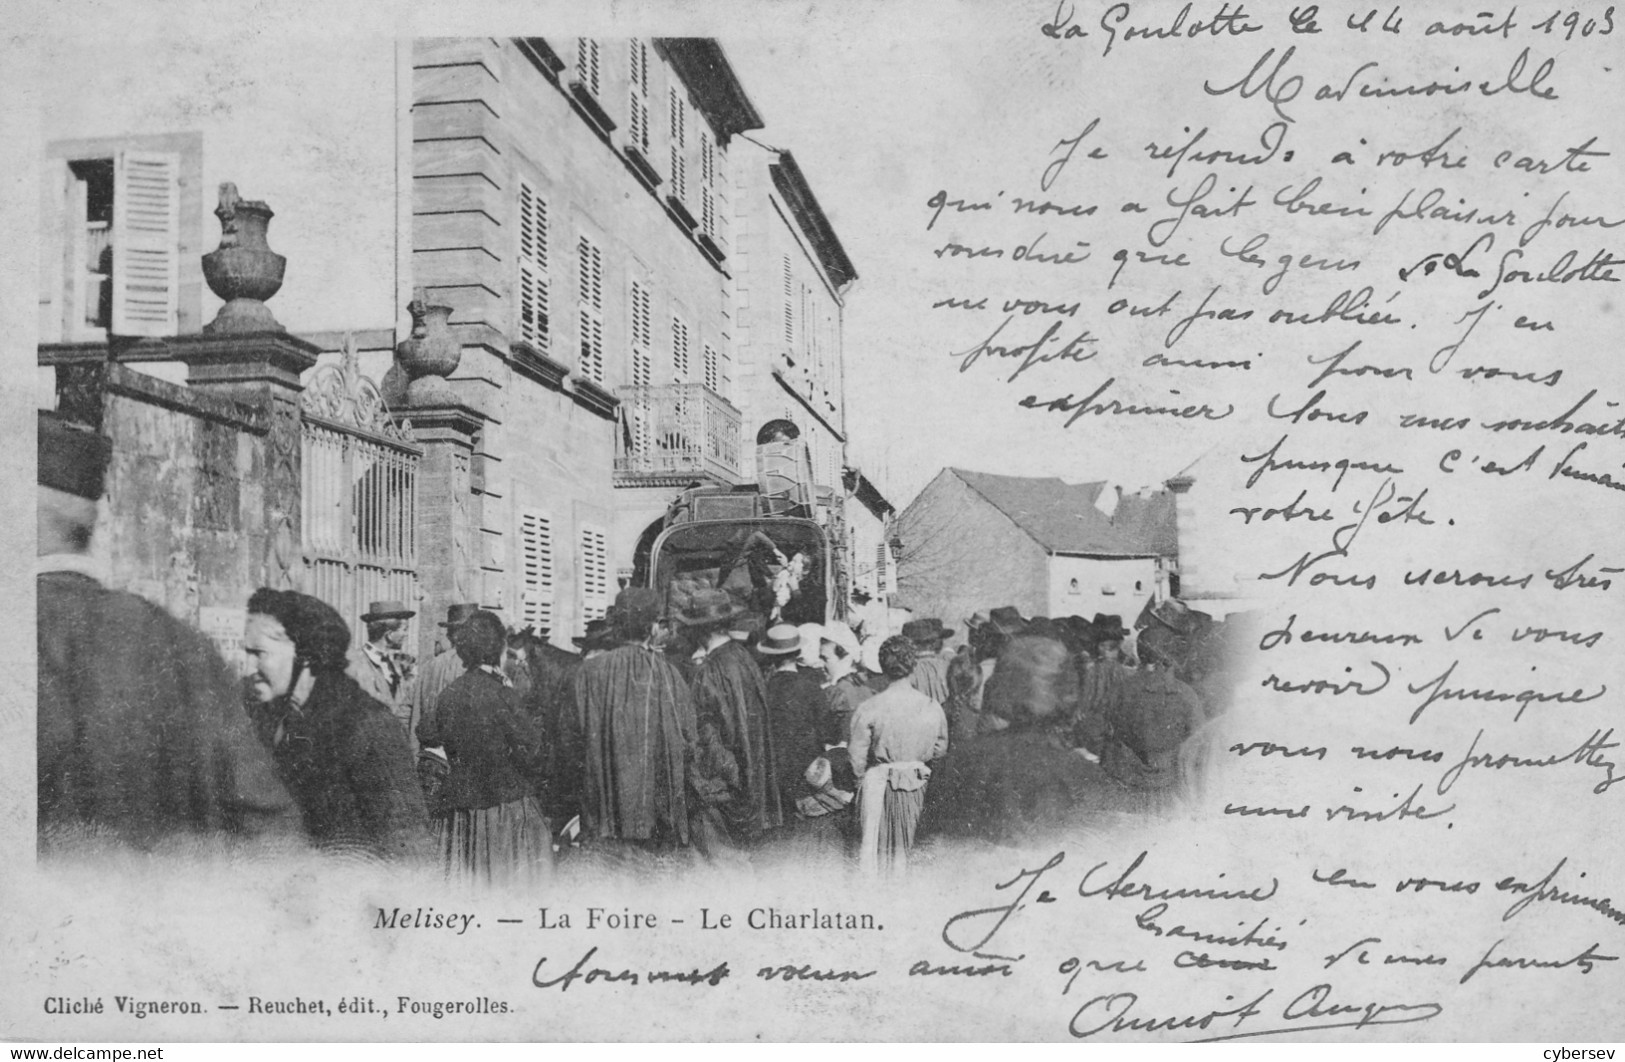 La Goulotte le 14 août 1903
Mademoiselle
Je réponds à votre carte
qui nous a fait bien plaisir pour
vous dire que les gens de La Goulotte
ne vous ont pas oubliée. J'en
profite aussi pour vous
exprimer tous mes souhaits
puisque c'est demain
votre fête.
Nous serons très
heureux de vous
revoir puisque
vous nous promettez
une visite.
Je termine en vous exprimant
les amitiés
tous mes vœux ainsi que ceux de mes parents
Melisey. — La Foire - Le Charlatan.
Cliché Vigneron. — Reuchet, édit., Fougerolles.
cybersev